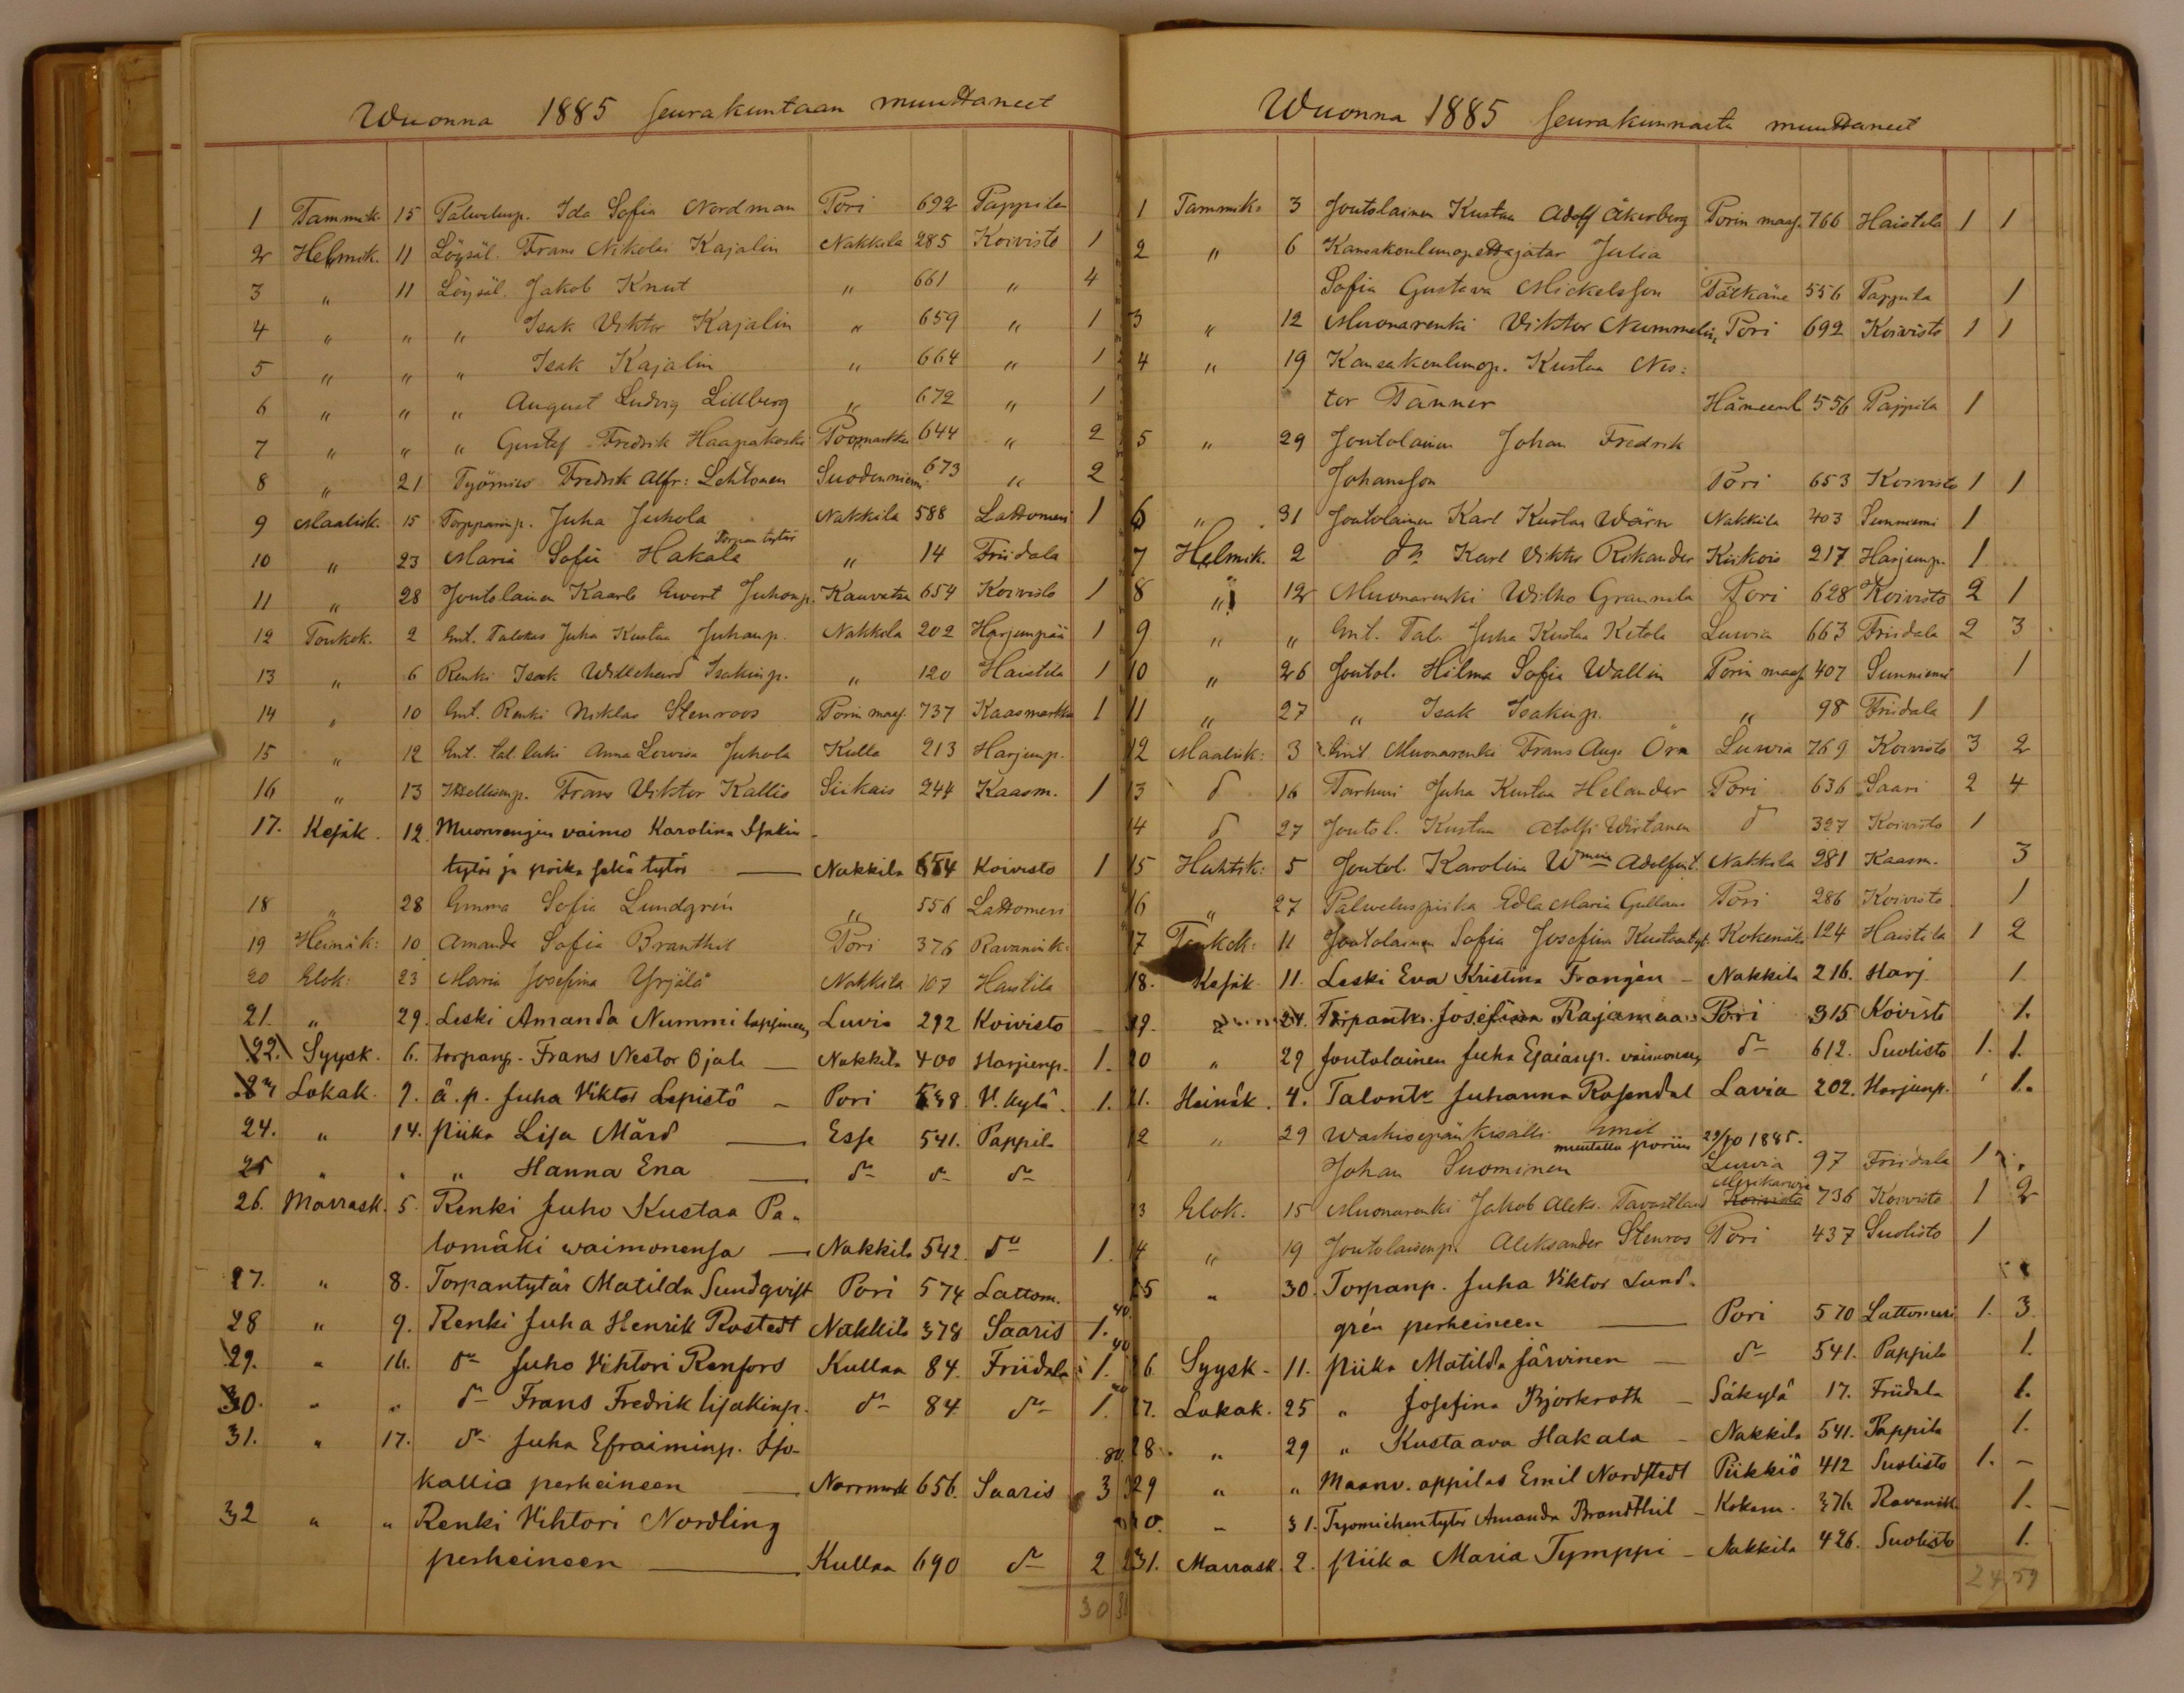 Wuonna 1885 seurakuntaan muuttaneet
1 Tammik. 15 Palvelusp. Ida Sofia Nordman Pori 692 Pappila
2 Helmik. 11 Löysäl. Frans Nikolai Kajalin Nakkila 285 Koivisto 1
3 " 11 Löysäl. Jakob Knut " 661 " 4
4 " " " Isak Viktor Kajalin " 659 " 1
5 " " " Isak Kajalin " 664 " 1
6 " " " August Ludvig Lillberg " 672 " 1
7 " " " Gustaf Fredrik Haapakoski Poomarkku 644 " 2
8 " 21 Työmies Fredrik Alfr: Lehtonen Suodenniemi 673 " 2
9 Maalisk. 15 Torpparinp. Juha Juhola Nakkila 588 Lattomeri 1
10 " 23 Maria Sofia Hakala Torpan tytär " 14 Friidala
11 " 28 Joutolainen Kaarlo Ewert Juhanp. Kauvatsa 654 Koivisto 1
12 Toukok. 2 Ent. Talokas Juha Kustaa Juhanp. Nakkila 202 Harjunpää 1
13 " 6 Renki Isak Willehard Isakinp. " 120 Haistila 1
14 " 10 Ent. Renki Niklas Stenroos Porin maas. 737 Kaasmarkku 1
15 " 12 Ent. tal. leski Anna Lovisa Juhola Kulla 213 Harjunp.
16 " 13 Itsellisenp. Frans Viktor Kallio Siikais 244 Kaasm. 1
17. Kesäk. 12. Muonrengin vaimo Karolina Isakin-
tytär ja poika sekä tytär — Nakkila 654 Koivisto 1
18 " 28 Emma Sofia Lundgrén " 556 Lattomeri
19 Heinäk: 10 Amanda Sofia Branthil Pori 376 Ravanink:
20 Elok: 23 Maria Josefina Yrjälä Nakkila 107 Haistila
21. " 29. Leski Amanda Nummi lapsineen, Luvia 292 Koivisto
22. Syysk. 6. torpanp. Frans Nestor Ojala — Nakkila 400 Harjunp. 1.
23 Lokak. 7. ä.p. Juha Viktor Lepistö — Pori 538. V. kylä. 1.
24. " 14. piika Lisa Mård — Esse 541. Pappila
25 " " " Hanna Ena — d:o d:o d:o
26. Marrask. 5. Renki Juho Kustaa Pa-
lomäki waimonensa — Nakkila 542. d:o 1.
27. " 8. Torpantytär Matilda Sundqvist Pori 574 Lattom.
28 " 9. Renki Juha Henrik Rostedt Nakkila 378 Saaris 1.
29. " 16. d:o Juho Vihtori Renfors Kullaa 84. Friidala 1.
30. " " d:o Frans Fredrik Iisakinp. d:o 84 d:o 1.
31. " 17. d:o Juha Efraiminp. Iso-
kallio perheineen — Norrmark 656. Saaris 3
32 " " Renki Vihtori Nordling
perheineen — Kullaa 690 d:o 2
30
Wuonna 1885 seurakunnasta muuttaneet
1 Tammik. 3 Joutolainen Kustaa Adolf Åkerberg Porin maas. 766 Haistila 1 1
2 " 6 Kansakoulunopettajatar Julia
Sofia Gustava Mickelsson Pälkäne 556 Pappila 1
3 " 12 Muonarenki Viktor Nummelin Pori 692 Koivisto 1 1
4 " 19 Kansakoulunop. Kustaa Nes:
tor Tanner Hämeenl 556 Pappila 1
5 " 29 Joutolainen Johan Fredrik
Johansson Pori 653 Koivisto 1 1
6 " 31 Joutolainen Karl Kustaa Wärn Nakkila 403 Sunniemi 1
7 Helmik. 2 d:o Karl Viktor Rikander Kiikois 217 Harjunp. 1
8 " 12 Muonarenki Wilho Grannila Pori 628 Koivisto 2 1
9 " " Ent. Tal. Juha Kustaa Ketola Luvia 663 Friidala 2 3
10 " 26 Joutol. Hilma Sofia Wallin Porin maas. 407 Sunniemi 1
11 " 27 " Isak Isakinp. " 98 Friidala 1
12 Maalisk: 3 Ent. Muonarenki Frans Aug. Öra Luvia 769 Koivisto 3 2
13 d:o 16 Torhuri Juha Kustaa Helander Pori 636 Saari 2 4
14 d:o 27 Joutol. Kustaa Adolf Wirtanen d:o 327 Koivisto 1
15 Huhtik: 5 Joutol. Karolina Adolfint. Nakkila 281 Kaasm. 3
16 " 27 Palveluspiika Edla Maria Gullans Pori 286 Koivisto 1
17 Toukok: 11 Joutolainen Sofia Josefina Kustaantyt. Kokemäki 124 Haistila 1 2
18. Kesäk. 11. Leski Eva Kristina Frangén — Nakkila 216. Harj. 1
19. 24. Torpantr. Josefina Rajamaa Pori 315 Koivisto 1.
20 " 29 Joutolainen Juha Esaianp. vaimoneen d:o 612. Suolisto 1. 1.
21. Heinäk. 4. Talontr Juhanna Rosendal Lavia 202. Harjunp. 1.
22 " 29 Waskisepän kisälli Emil muuttanu poriin 29/10 1885.
Johan Suominen Luvia 97 Friidala 1
23 Elok. 15 Muonarenki Jakob Aleks. Tavastland Merikarvia 736 Koivisto 1 2
24 " 19 Joutolaisenp. Aleksander Stenros Pori 437 Suolisto 1
25 " 30. Torpanp. Juha Viktor Lund-
grén perheineen — Pori 570 Lattomeri 1. 3.
26 Syysk. 11. piika Matilda Järvinen — d:o 541. Pappila 1.
27. Lokak. 25 " Josefina Björkroth — Säkylä 17. Friidala 1.
28. " 29 " Kustaava Hakala — Nakkila 541. Pappila 1.
29 " " Maanv. oppilas Emil Nordstedt Piikkiö 412 Suolisto 1. -
30. - 31. Työmiehentytär Amanda Brandthil — Kokem. 376. Ravanik. 1.
31. Marrask. 2. piika Maria Tymppi — Nakkila 426. Suolisto 1.
24,59